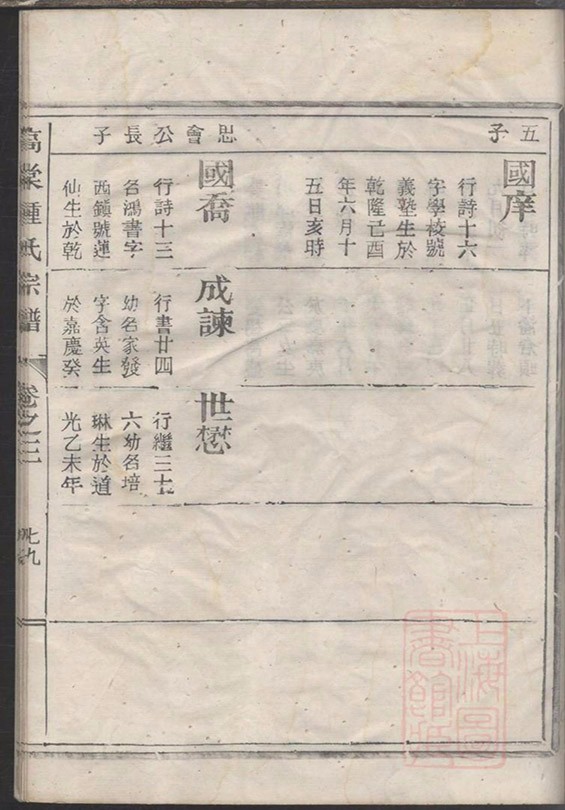 五子
國庠
行詩十六
字學校號
義塾生於
乾隆己酉
年六月十
五日亥時
思會公長子
國喬
行詩十三
名鴻書字
西鎮號蓮
仙生於乾
成諫
行書廿四
幼名家發
字含英生
於嘉慶癸
世懋
行繼三十
六幼名培
琳生於道
光乙未年
高棠鍾氏宗譜
卷之三
七九
上海圖書館藏